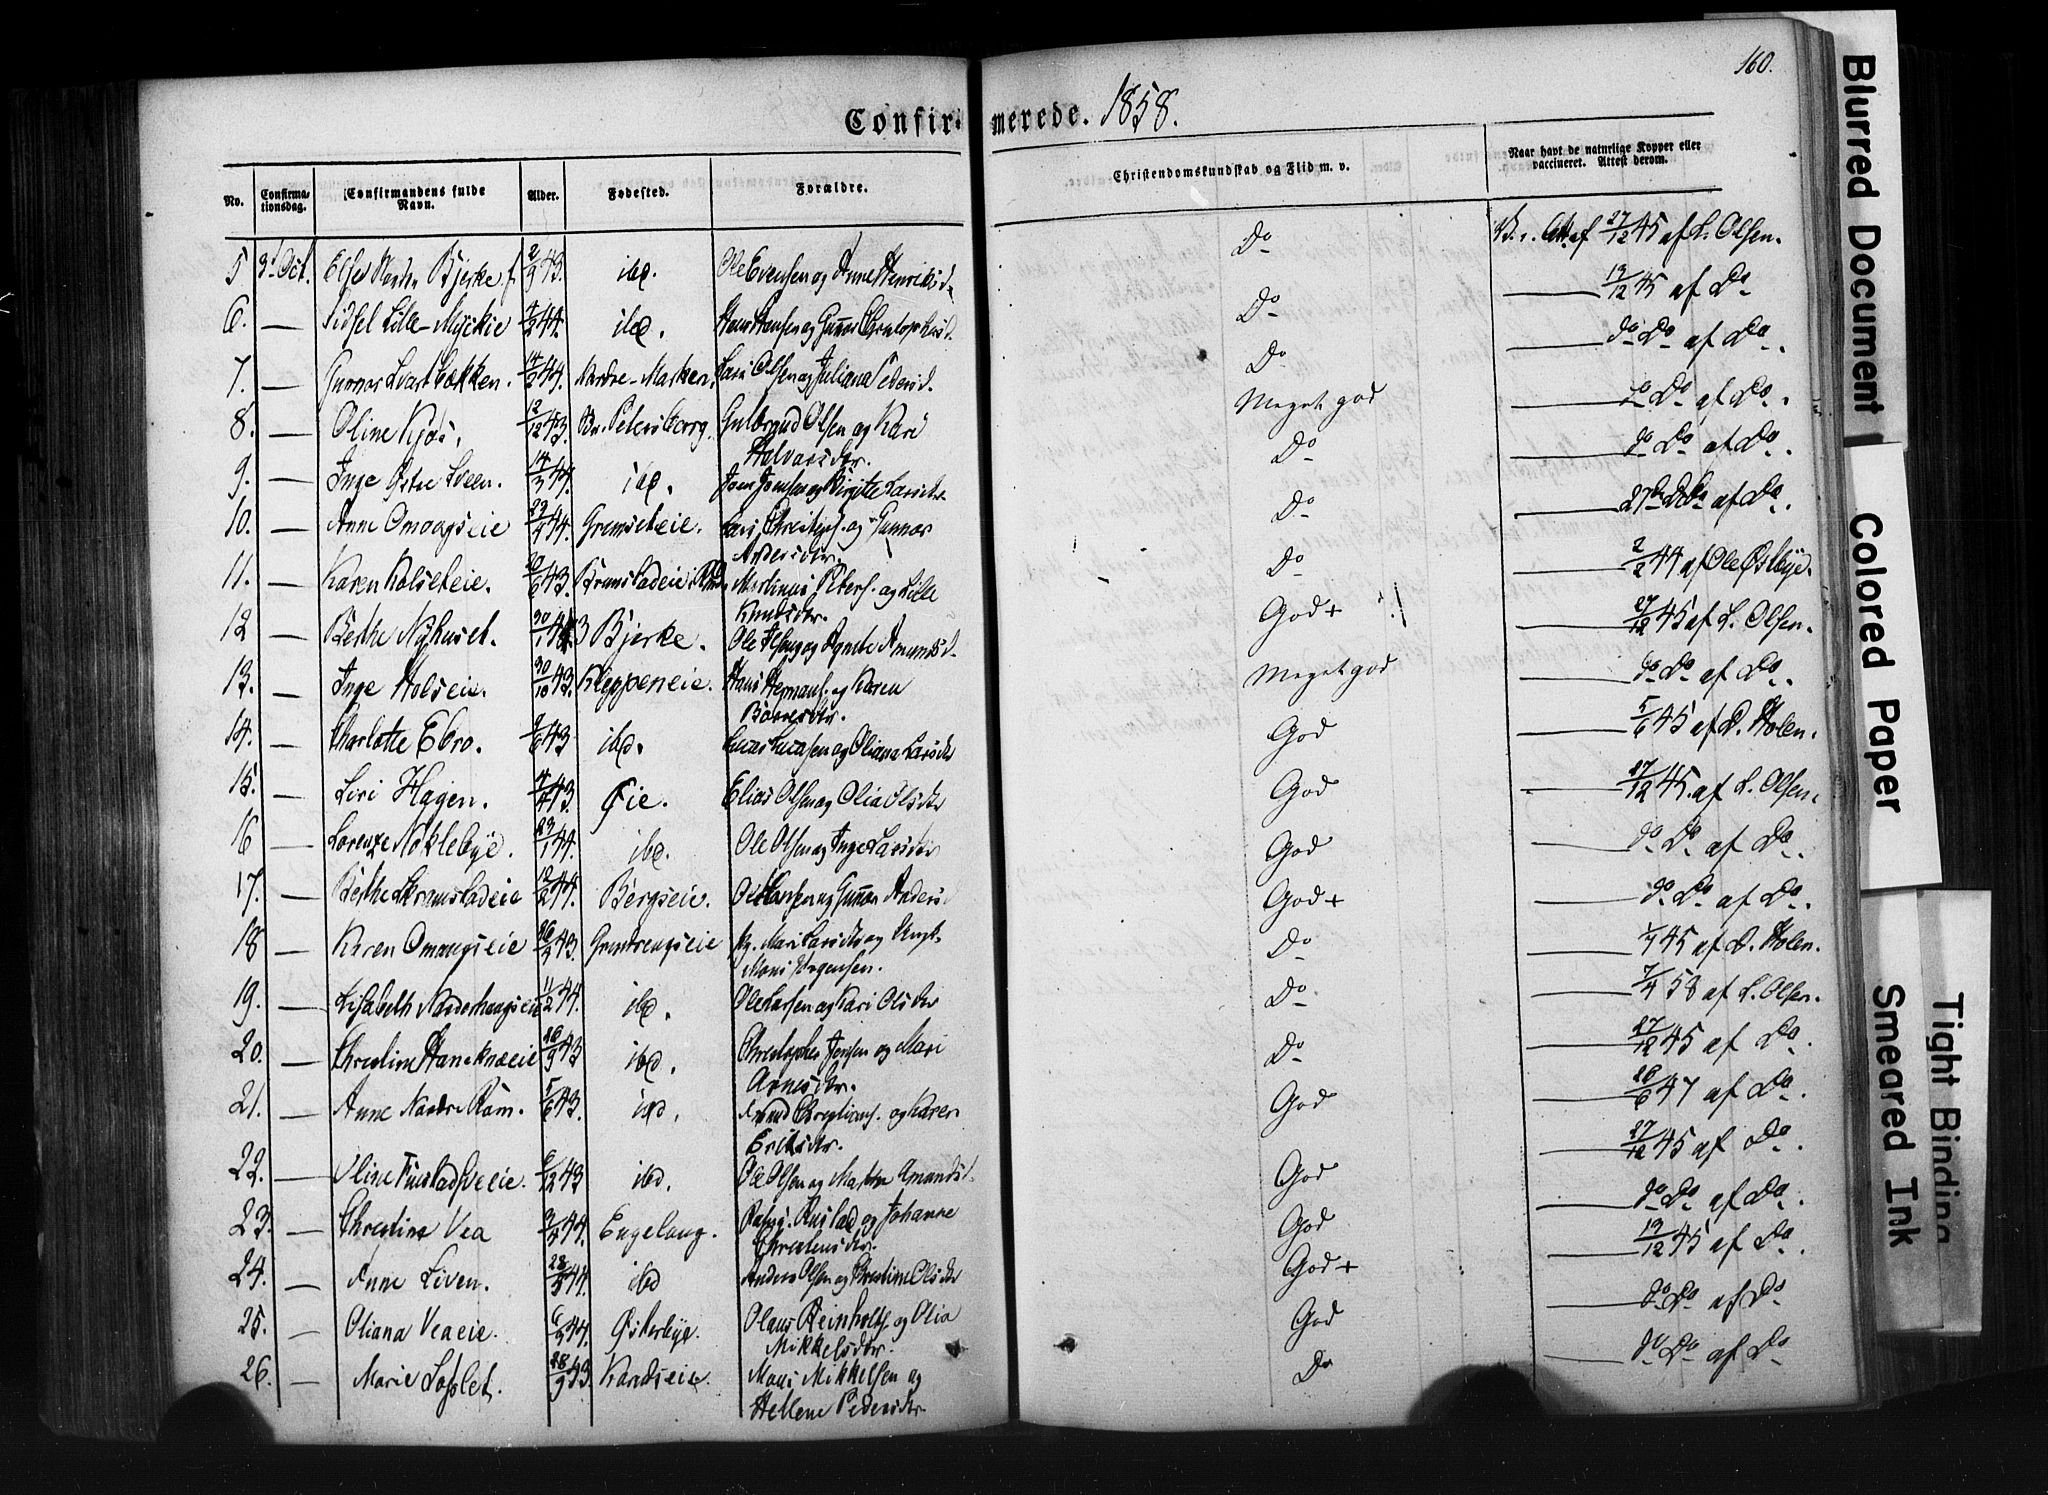 160.
Confirmerede. 1858.
No. Confirmationsdag. Confirmandens fulde Navn. Alder. Fødested. Forældre. Christendomskundskab og Flid m. v. Naar havt de naturlige Kopper eller vaccineret. Attest derom.
5 3d Oct. Else Bjerke 2/9 43. ibd. Ole Evensen og Anne Henriksd. Do 27/12 45 af L. Olsen.
6. — Sidsel Lille-Myckie 4/2 44. ibd. Hans Hansen og Gunnor Do 19/12 45 af Do
7. — Gunnor Svartbækken. 14/2 44. Nordre-Marken. Lars Olsen og Juliana Pedersd. Do do Do af Do.
8. — Oline Kjos. 12/12 43. Petersborg. Gulbrand Olsen og Kari Halvorsdtr. Meget god do Do af Do.
9. — Inge Østre Sveen. 14/ 44. ibd. Joen Joensen og Birgitte Larsdtr. Do do Do af Do.
10. — Anne Omangseie 44. Grimseteie. Lars Christophs. og Gunnor Andersdtr. Do af Do.
11. — Karen Kolseteie. /6 43. Martinus Peters. og Lille Knudsdtr. Do 2/2 44 af Ole Østbye.
12 — Berthe Nyhuset. 30/1 43 Bjerke. Ole Olsen og Agnete Amundsd. God+ 27/12 45 af L. Olsen.
13. — Inge Holseie. 30/10 43. Kleppeneie. Hans Hermans. og Karen Meget god do Do af Do.
14. — Charlotte Ebro. /6 43 ibd. Lucas Lucasen og Oliana Larsdtr God 5/6 45 af D. Holen.
15. — Siri Hagen. 43. Øie. Elias Olsen og Olia Olsdtr God 27/12 45. af L. Olsen.
16 — Lorenze Noklebye. 23/1 44. ibd. Ole Olsen og Inge Larsdtr God do Do af Do.
17. — Berthe Skramstadeie 12/2 44. Bergseie. Ole Hansen og Gunnor Andersd God+ do Do af Do.
18 — Karen Omangseie 26/2 43. Grundsengseie Pg. Mari Larsdtr og Ungk. Mons Jörgensen. Do 45 af D. Holen.
19. — Lisabeth Nordhaugseie 11/2 44. ibd. Ole Larsen og Kari Olsdtr Do 7/4 58 af L. Olsen.
20. — Christine Hanekneeie 26/9 43 ibd. Christopher Jensen og Mari Arnesdtr. Do 27/12 45 af Do.
21. — Anne Nordre Røm. 5/6 43. ibd. Christians. og Karen Eriksdtr. God 26/6 47 af Do.
22. — Oline Finstadsveeie. /12 43 ibd. Ole Olsen og Marthe Amundsd. God 27/12 45 af Do.
23. — Christine Vea 3/4 44. Engelaug. Rustad og Johanne Christensdtr. God do Do af Do.
24. — Anne Liven. 28/ 44. ibd Anders Olsen og Christine Olsdtr God+ 19/12 45 af Do.
25. — Oliana Veaeie. 6/ 44. Østerbye. Olaus Reinholts. og Olia Mikkelsdtr. God do Do af Do
26. — Marie Løfslet. 28/9 43. Mons Mikkelsen og Hellene Pedersdtr Do do Do af Do
Blurred Document
Colored Paper
Tight Binding
Smeared Ink